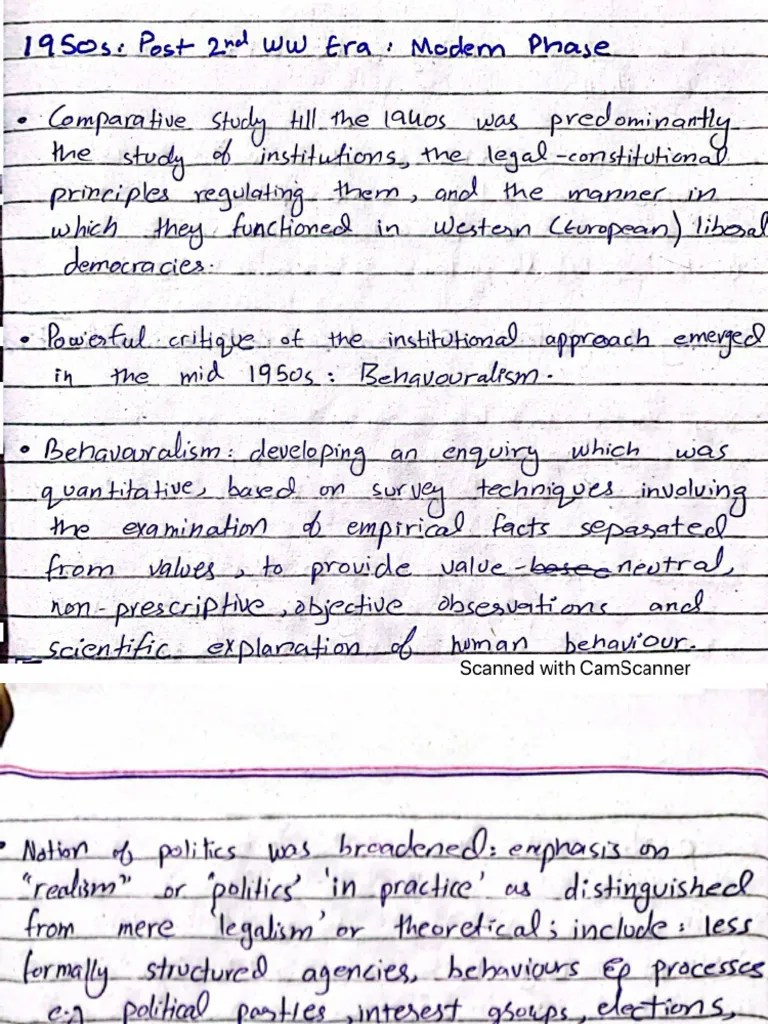 1950s: Post 2nd WW Era: Modern Phase
• Comparative study till the 1940s was predominantly
the study of institutions, the legal-constitutional
principles regulating them, and the manner in
which they functioned in Western (European) liberal
democracies.
• Powerful critique of the institutional approach emerged
in the mid 1950s: Behavouralism.
• Behavouralism: developing an enquiry which was
quantitative, based on survey techniques involving
the examination of empirical facts separated
from values, to provide value-based neutral,
non-prescriptive, objective observations and
scientific explanation of human behaviour.
Scanned with CamScanner
• Notion of politics was broadened: emphasis on
"realism" or 'politics' 'in practice' as distinguished
from mere 'legalism' or theoretical; include: less
formally structured agencies, behaviours & processes
e.g political parties, interest groups, elections,